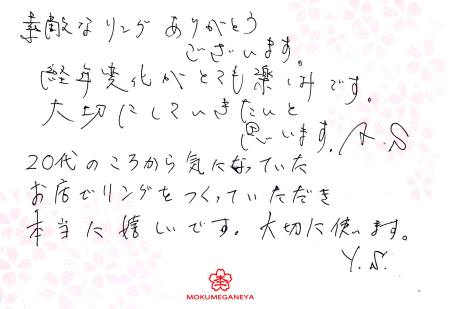 素敵なリング ありがとう
ございます。
経年変化がとても楽しみです。
大切にしていきたいと
思います。A.S
20代のころから気になっていた
お店でリングをつくっていただき
本当に嬉しいです。大切に使います。
Y.S.
杢
MOKUMEGANEYA